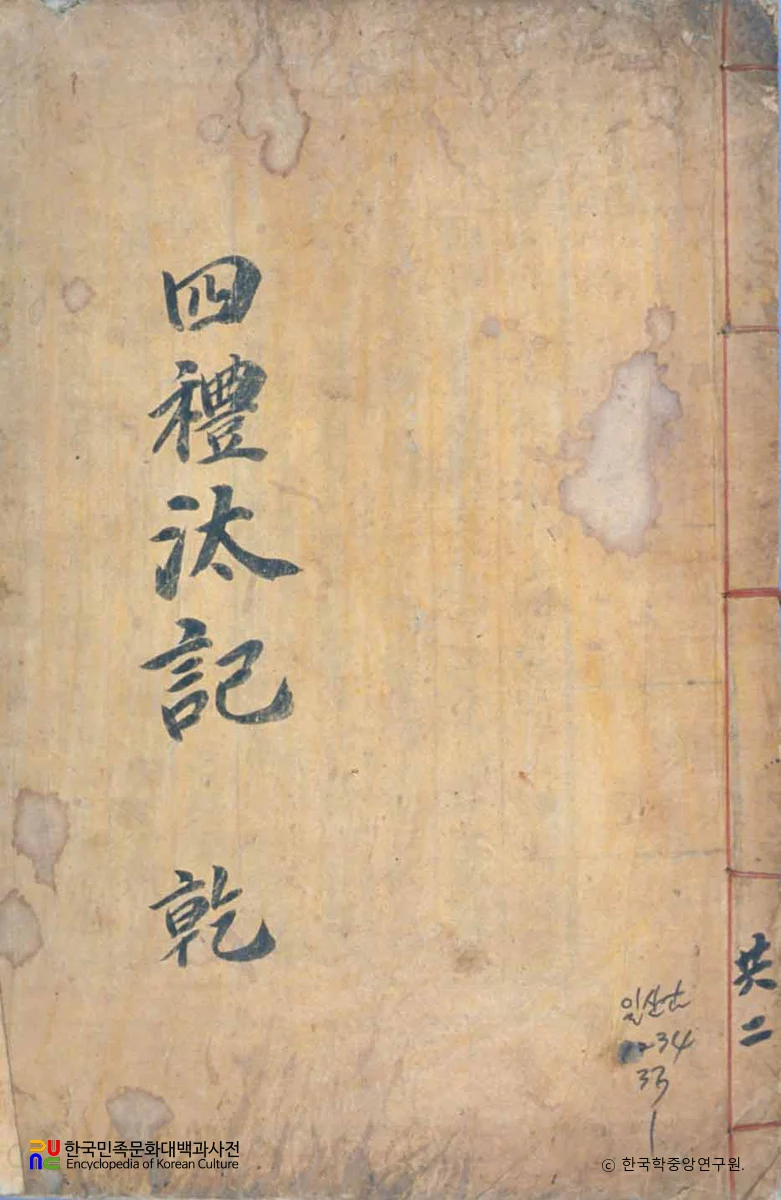 四禮汰記 乾
共二
일산고
1234
33
1
한국민족문화대백과사전
Encyclopedia of Korean Culture
© 한국학중앙연구원.